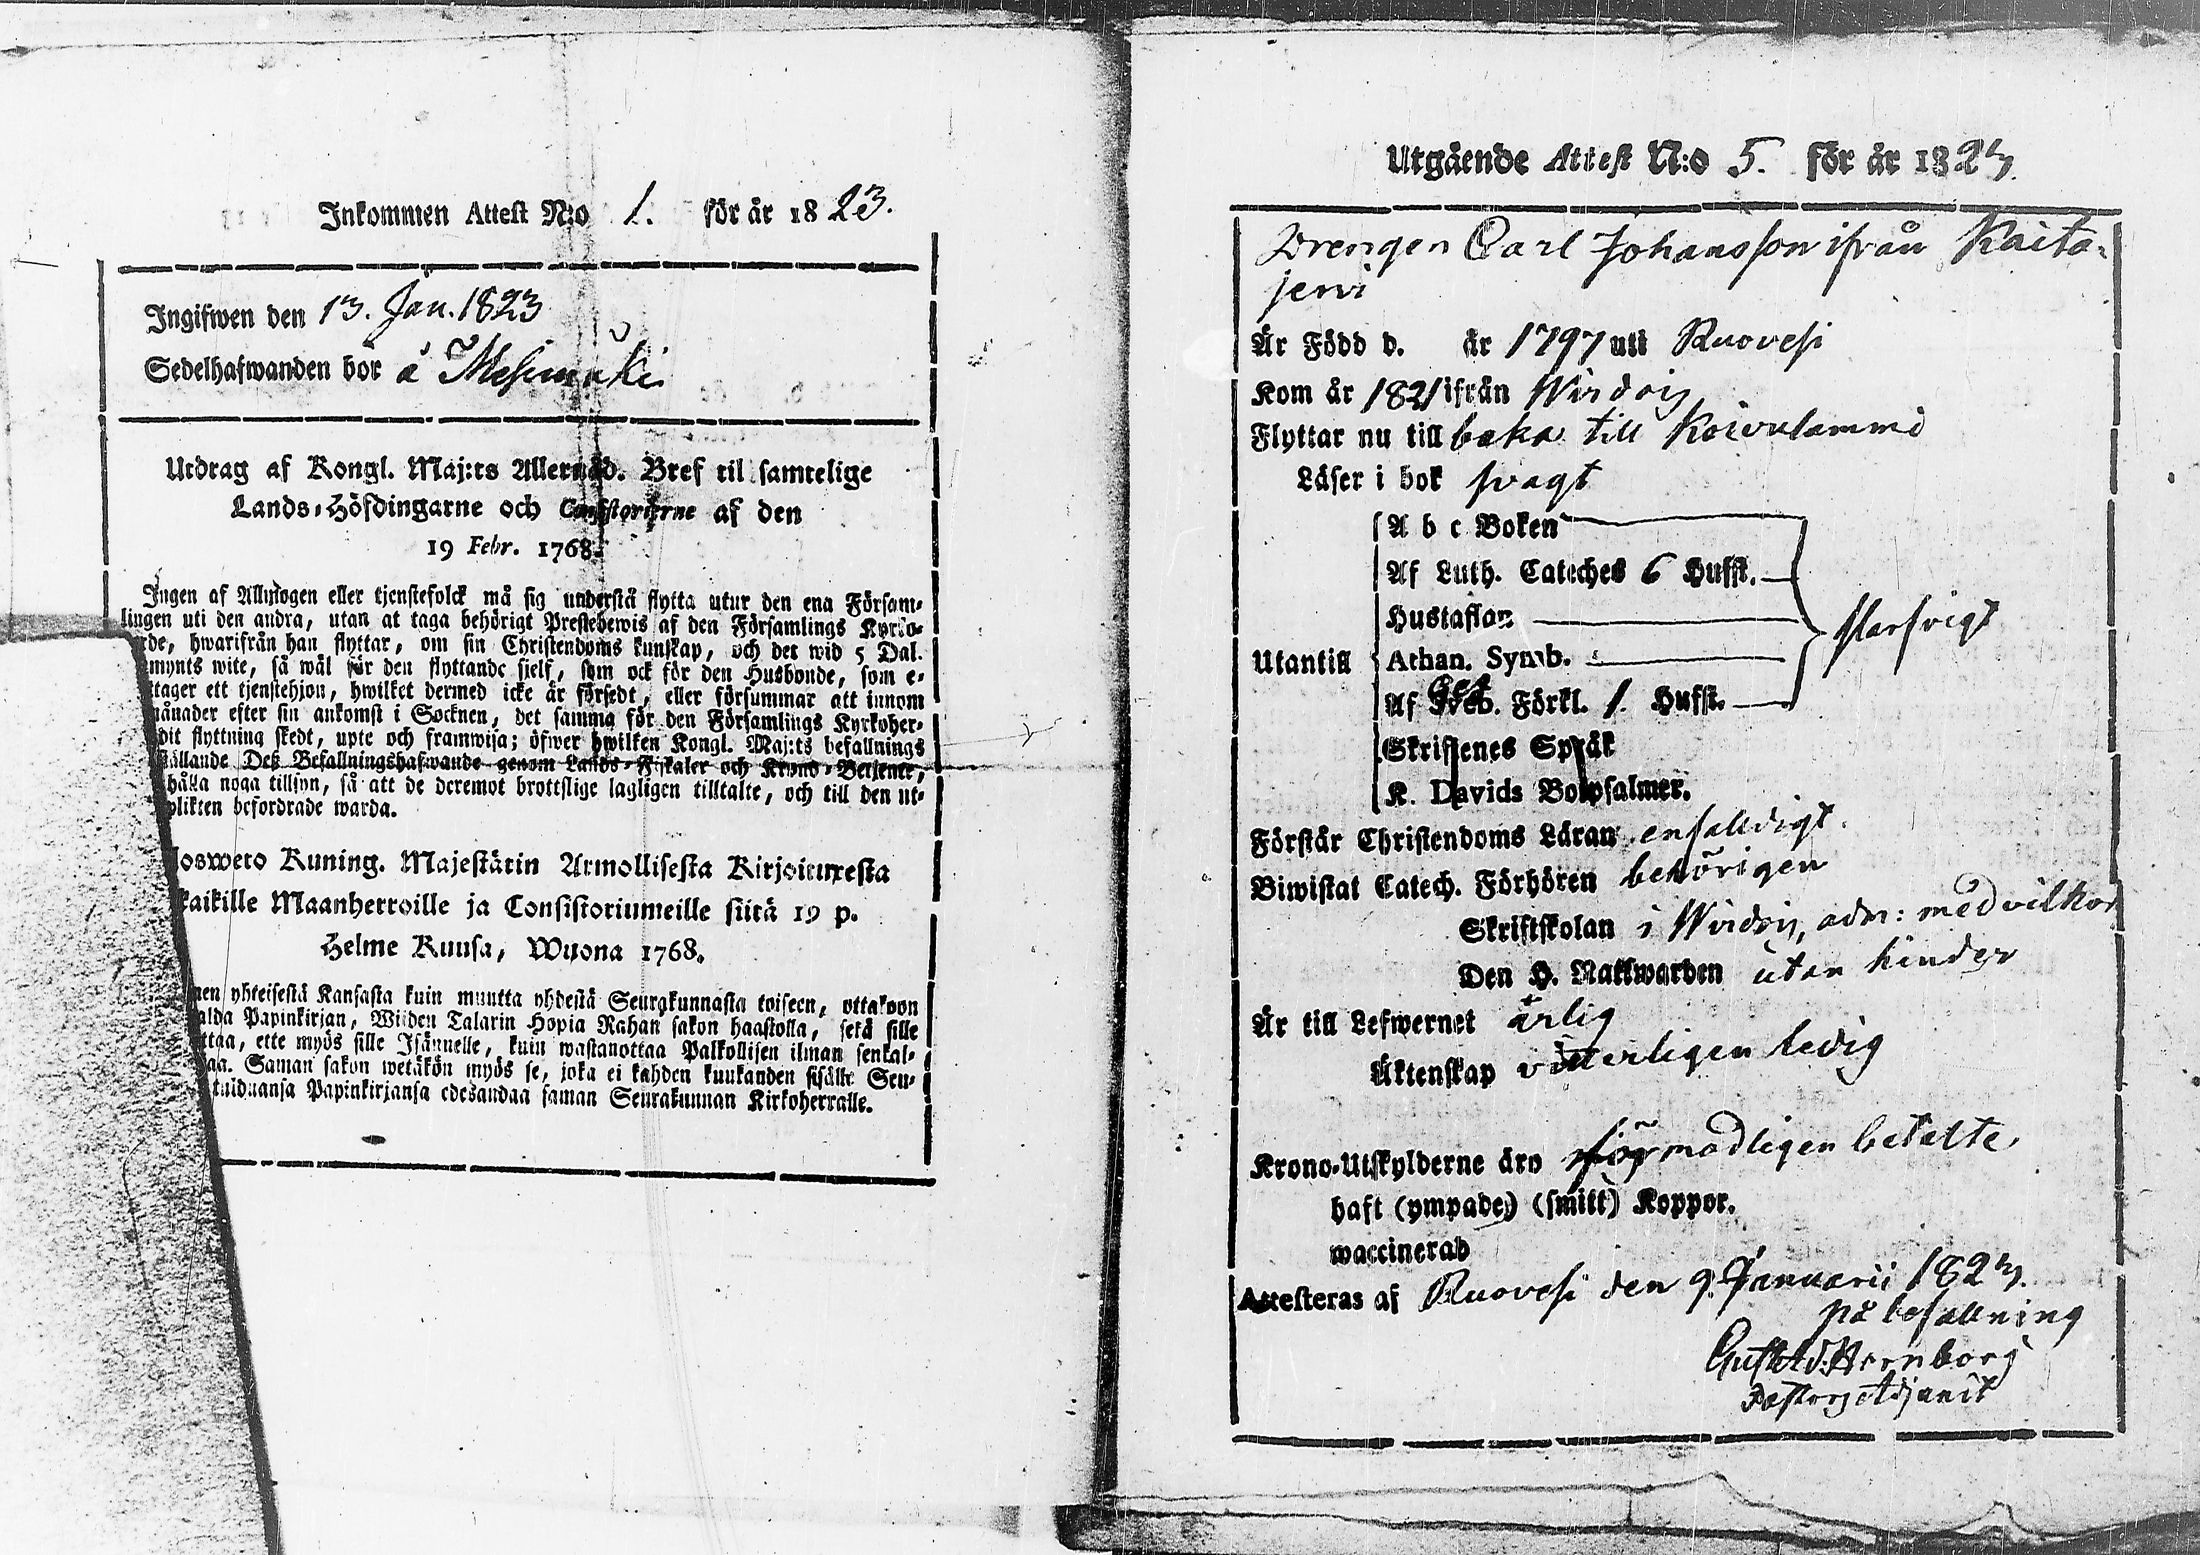 Inkommen Attest N:o 1. för år 1823.
Ingifwen den 13. Jan. 1823
Sedelhafwanden bor å Mesimäki
Utdrag af Kongl. Maj:ts Allernåd. Bref til samtelige
Lands-Höfdingarne och Consistorierne af den
19 Febr. 1768.
Ingen af Allmogen eller tjenstefolck må sig understå flytta utur den ena Försam-
lingen uti den andra, utan at taga behörigt Prestebewis af den Församlings Kyrko-
rde, hwarifrån han flyttar, om sin Christendoms kunskap, och det wid 5 Dal.
mynts wite, så wäl för den flyttande sjelf, som ock för den Husbonde, som e-
tager ett tjenstehjon, hwilket dermed icke är försedt, eller försummar att innom
månader efter sin ankomst i Socknen, det samma för den Församlings Kyrkoher-
dit flyttning skedt, upte och framwisa; öfwer hwilken Kongl. Maj:ts befallnings
ställande Deß Befallningshafwande genom Lands-Fiskaler och Krono-Betjente,
hålla noga tillsyn, så att de deremot brottslige lagligen tilltalte, och till den ut-
plikten befordrade warda.
losweto Kuning. Majestätin Armollisesta Kirjoituxesta
kaikille Maanherroille ja Consistoriumeille siitä 19 p.
Helme Kuusa, Wuona 1768.
nen yhteisestä Kansasta kuin muutta yhdestä Seurakunnasta toiseen, ottakoon
alda Papinkirjan, Wiiden Talarin Hopia Rahan sakon haastolla, sekä sille
ttaa, ette myös sille Isännelle, kuin wastanottaa Palkollisen ilman senkal-
aa. Saman sakon wetäkön myös se, joka ei kahden kuukauden sisälle Seu-
tulduansa Papinkirjansa edesandaa saman Seurakunnan Kirkoherralle.
Utgående Attest N:o 5. för år 1823.
Drengen Carl Johansson ifrån Kaita-
jerwi
Är Född d. år 1797 uti Ruovesi
Kom år 1821 ifrån Wirdois
Flyttar nu till baka till Koivulammi
Läser i bok svagt
A b c Boken
Af Luth. Cateches 6 Hufst.
Hustaflan
Utantill Athan. Symb. Slarfvigt
Af Förkl. 1. Hufst.
Skriftenes Språk
K. Davids Botpsalmer.
Förstår Christendoms Läran enfalldigt.
Biwistat Catech. Förhören behörigen
Skriftskolan i Wirdois, adm: med vilkor
Den H. Nattwarden utan hinder
Är till Lefwernet ärlig
Äktenskap vitterligen ledig
Krono-Utskylderne äro förmodligen betalte.
haft (ympade) (smitt) Koppor.
waccinerad
Attesteras af Ruovesi den 9. Januarii 1823.
på befallning
Pastors Adjunct